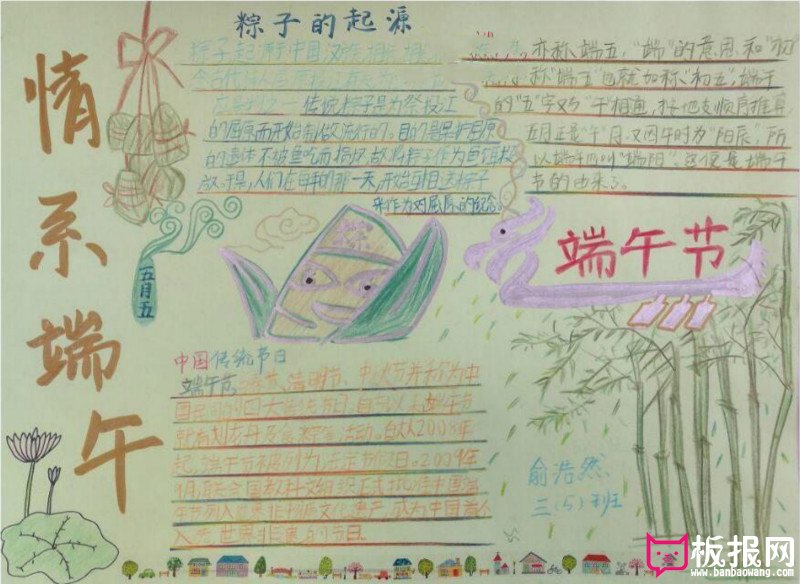 情系端午
粽子的起源
粽子起源于中国
传统粽子是为祭投江
的屈原而开始制做流行的。目的是保护屈原
的遗体不被鱼吃而
放。于是,人们在每年的那一天,开始互相送粽子
来作为对屈原的纪念。
亦称端五,"端"的意思和"初"
称"端五"也就如称"初五";端午
的"五"字又与"午"相通,按地支顺序推算,
五月正是"午"月。又因午时为"阳辰",所
以端午也叫"端阳"。这便是端午
节的由来了。
五月五
端午节
中国传统节日
端午节、春节、清明节、中秋节并称为中
国民间的四大传统节日。自古以来端午节
就有划龙舟及食粽等活动。自从2008年
起,端午节被列为法定节假日。2009年
9月,联合国教科文组织正式批准中国端
午节列入世界非物质文化遗产,成为中国首个
入选世界非遗的节日。
俞浩然
三(5)班
板报网
www.banbaowang.com